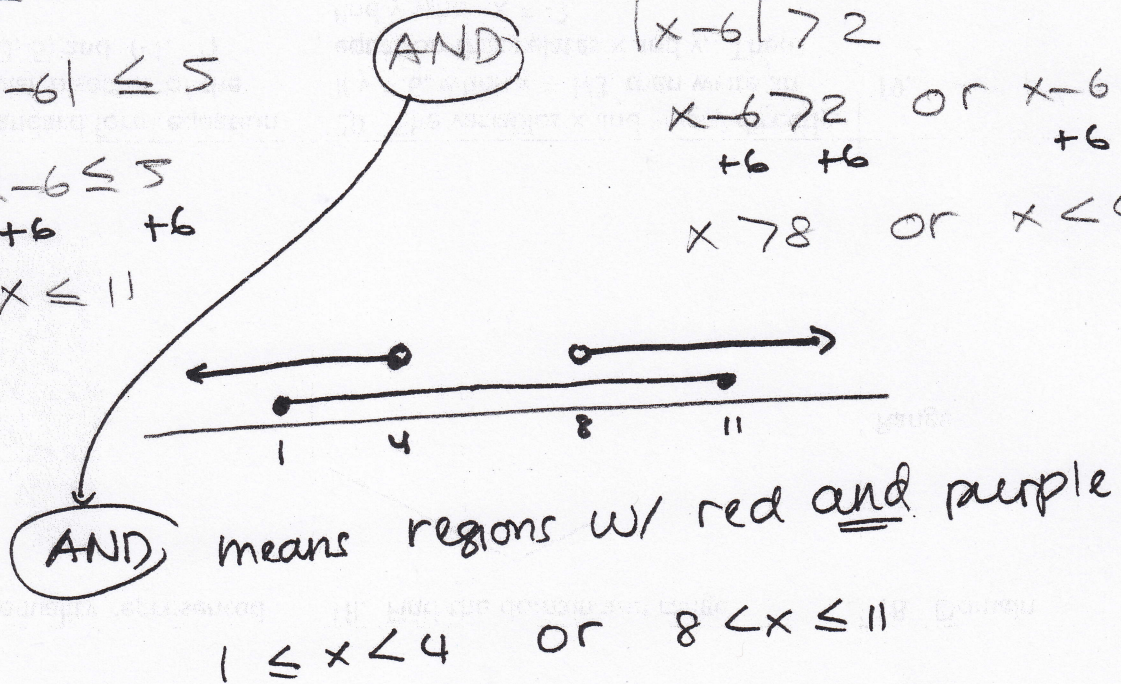 -6| ≤ 5
AND
|x-6| > 2
-6 ≤ 5
+6 +6
x ≤ 11
x-6 > 2 or x-6
+6 +6 +6
x > 8 or x <
1 4 8 11
AND means regions w/ red and purple
1 ≤ x < 4 or 8 < x ≤ 11